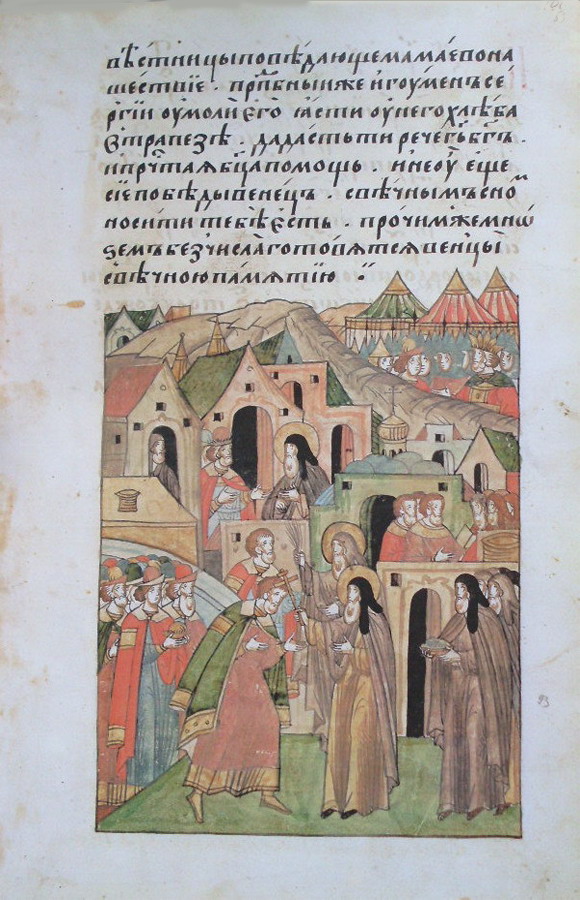 вѣстницыповѣдающемамаевона
шествїе · прпⷣбныиже игоуменъсе
ргїи оумоли его ꙗсти оу него хлѣба
втрапезѣ · дадастьти рече гь҃ бг҃ъ ·
ипрчⷭтаꙗ бцⷣа помощь · и не оу҆ еще
сїе побѣды венецъ · свѣчнымъ сно
носити тебѣ есть · прочимже мно
ѕемъ безчисла готовѧтсѧ венцы
свѣчною памѧтїю
93